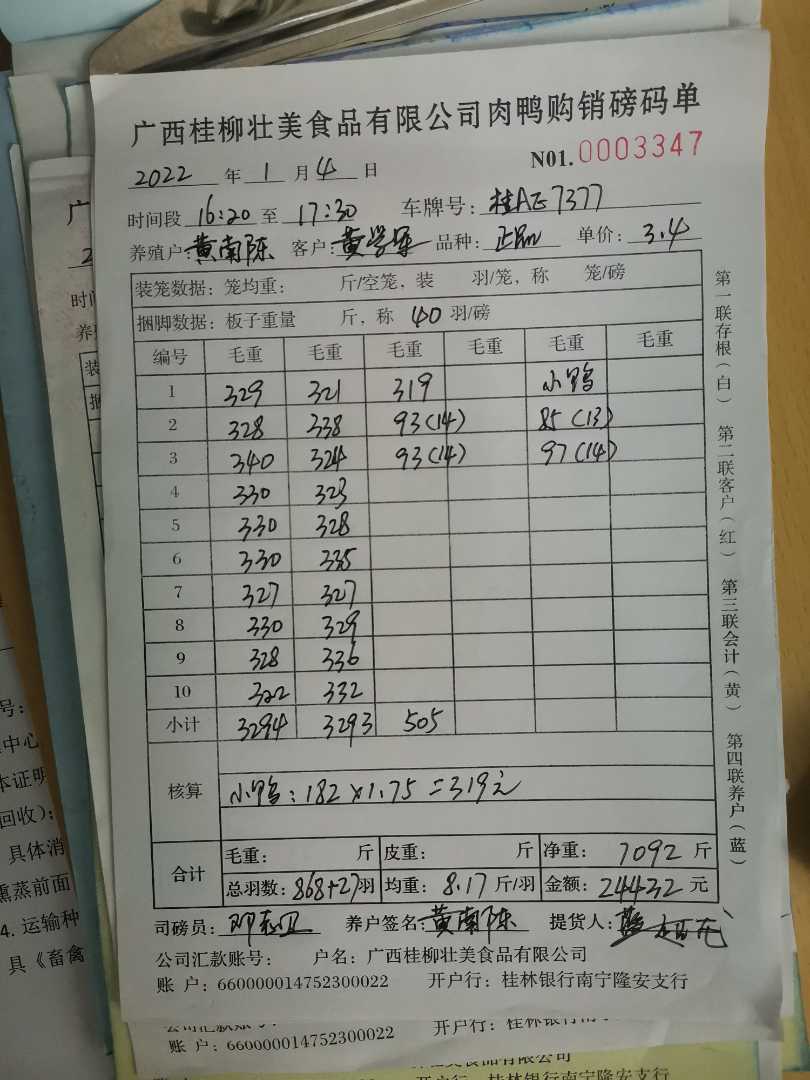 广西桂柳壮美食品有限公司肉鸭购销磅码单
2022 年 1 月 4 日 N01. 0003347
时间段 16:20 至 17:30 车牌号: 桂AE7377
养殖户: 黄南陈 客户: 黄学军 品种: 正品 单价: 3.4
装笼数据: 笼均重: 斤/空笼, 装 羽/笼, 称 笼/磅
捆脚数据: 板子重量 斤, 称 40 羽/磅
编号 毛重 毛重 毛重 毛重 毛重 毛重
1 329 321 319 小鸭
2 328 338 93(14) 85(13)
3 340 324 93(14) 97(14)
4 330 323
5 330 328
6 330 335
7 327 327
8 330 329
9 328 336
10 322 332
小计 3294 3293 505
核算 小鸭: 182×1.75=319元
合计
毛重: 斤 皮重: 斤 净重: 7092 斤
总羽数: 868+27羽 均重: 8.17 斤/羽 金额: 24432 元
司磅员: 养户签名: 黄南陈 提货人:
公司汇款账号: 户名: 广西桂柳壮美食品有限公司
账户: 660000014752300022 开户行: 桂林银行南宁隆安支行
第一联存根(白) 第二联客户(红) 第三联会计(黄) 第四联养户(蓝)
号:
中心
本证明
回收);
具体消
熏蒸前面
4. 运输种
具《畜禽
账户: 660000014752300022 开户行: 桂林银行南
开户行: 桂林银行南宁隆安支行